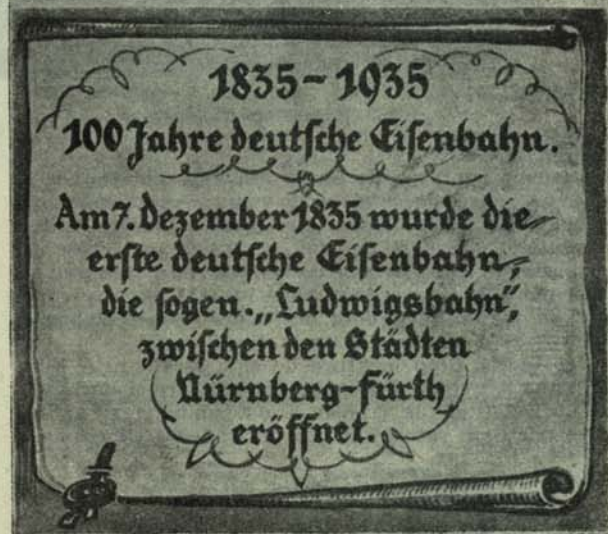 1835-1935
100 Jahre deutsche Eisenbahn.
Am 7. Dezember 1835 wurde die
erste deutsche Eisenbahn,
die sogen. „Ludwigsbahn“,
zwischen den Städten
Nürnberg-Fürth
eröffnet.